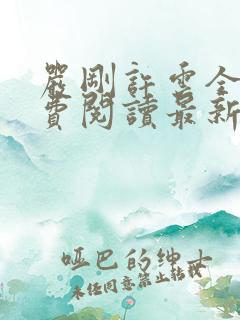 嚴剛許雲全
費閱讀最新
哑巴的绅士
未任同意禁止转载